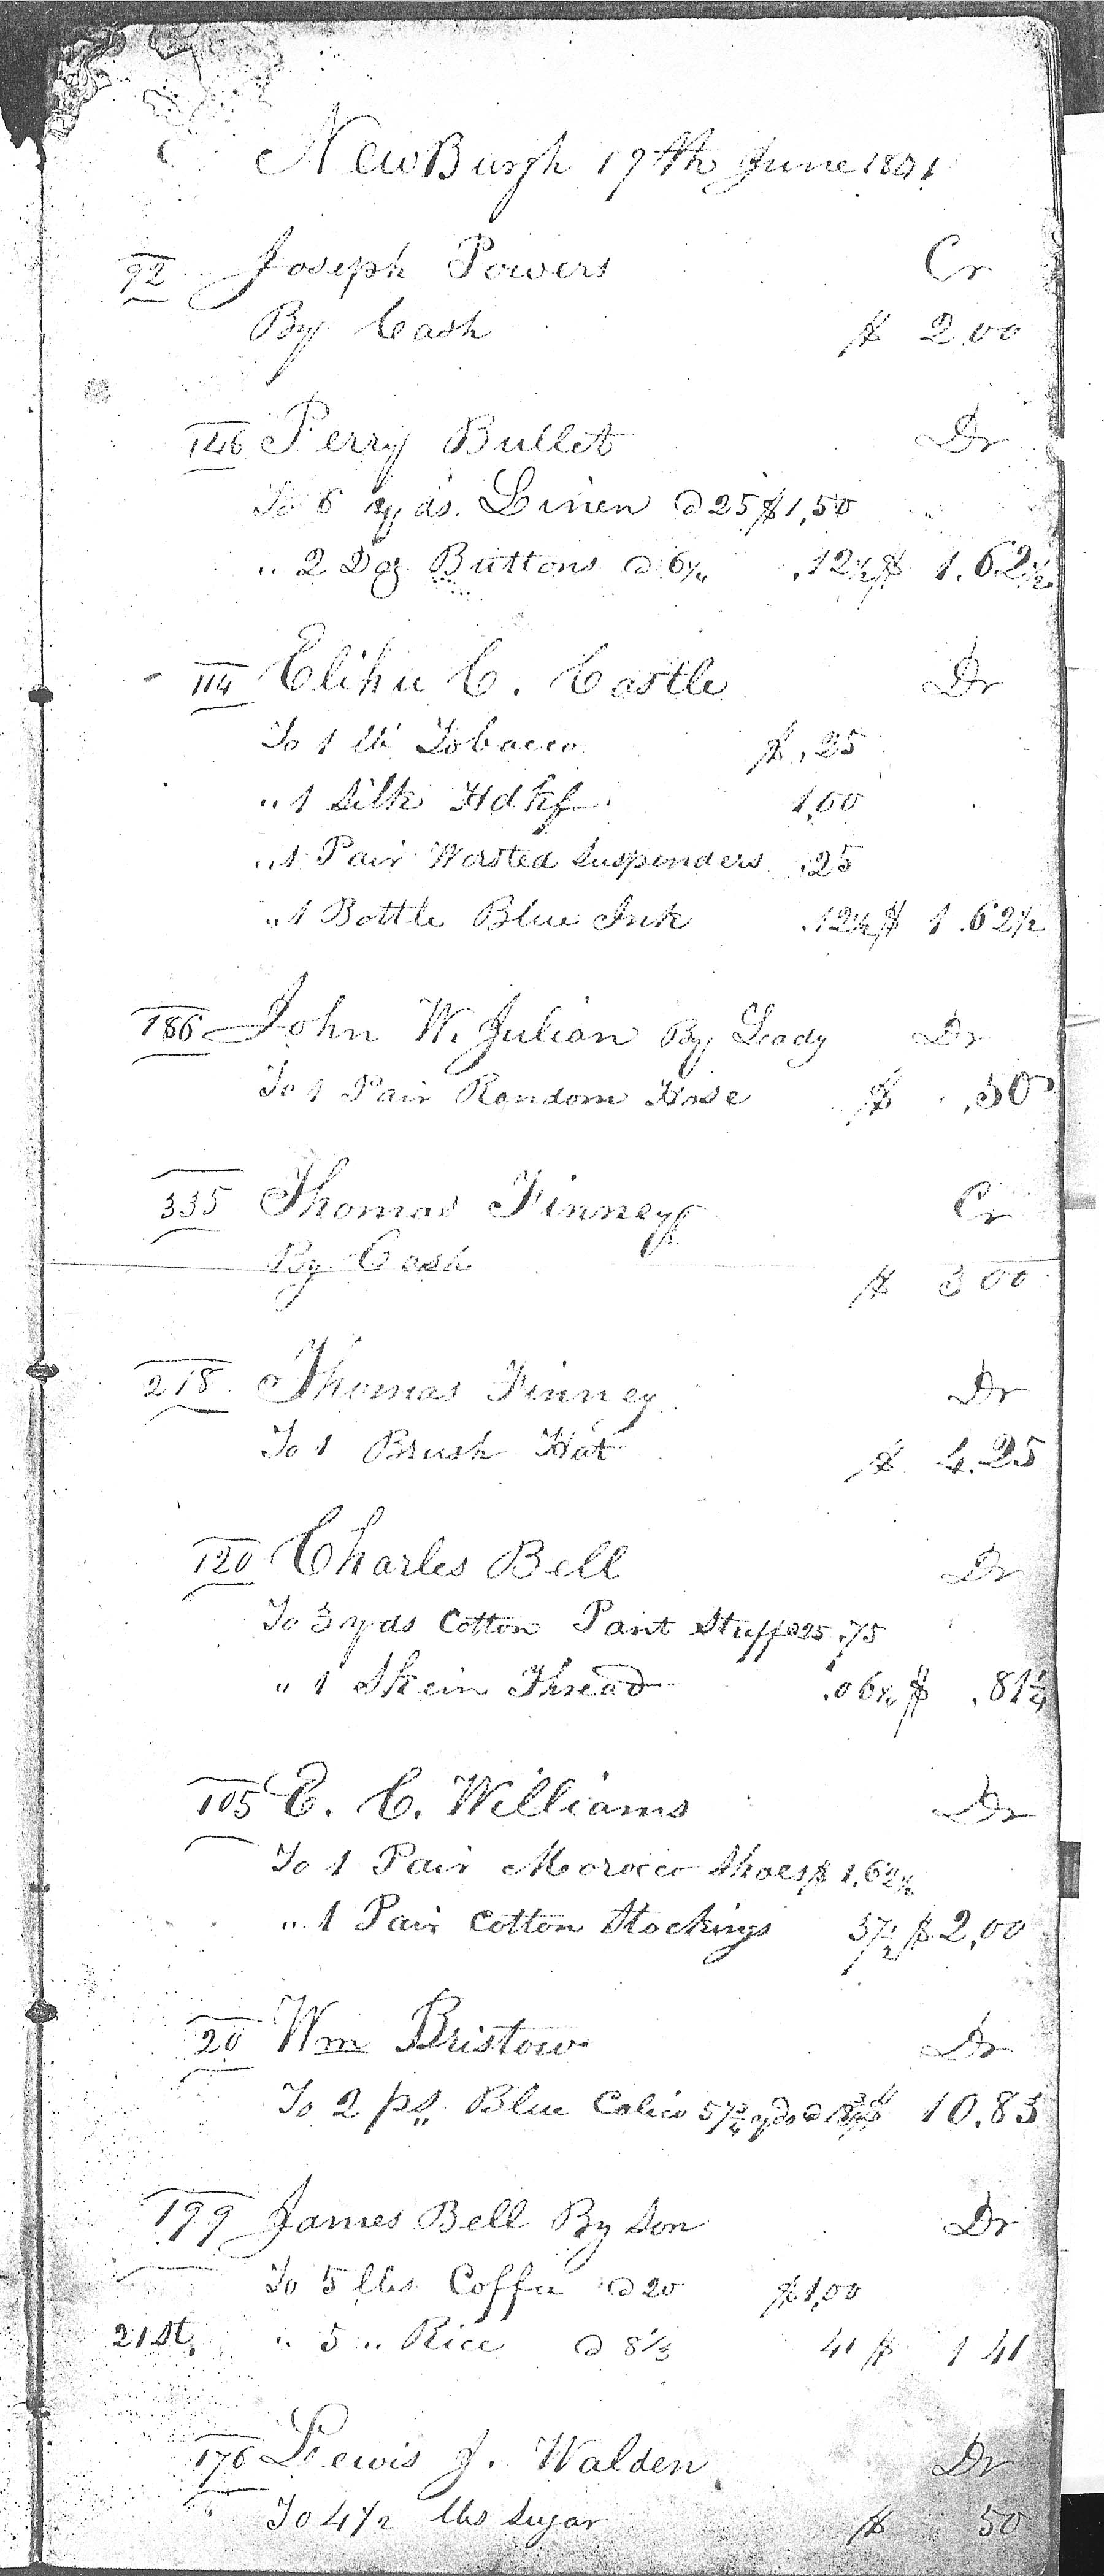 NewBurgh 19th June 1841
92 Joseph Powers Cr
By Cash $ 2,00
146 Perry Bullet Dr
To 6 yds. Linen @ 25 $1,50
" 2 Doz Buttons @ 6¼ .12½ $ 1.62½
114 Elihu C. Castle Dr
To 1 lb Tobacco $ ,25
" 1 Silk Hdkf 1,00
" 1 Pair Worsted Suspenders .25
" 1 Bottle Blue Ink .12½ $ 1.62½
186 John W. Julian By Lady Dr
To 1 Pair Random Hose $ .50
335 Thomas Finney Cr
By Cash $ 3 00
218 Thomas Finney Dr
To 1 Brush Hat $ 4.25
120 Charles Bell Dr
To 3 yds Cotton Pant Stuff @25 .75
" 1 Skein Thread .06¼ $ .81¼
105 E. C. Williams Dr
To 1 Pair Morocco Shoes $ 1,62½
" 1 Pair Cotton Stockings 37½ $ 2,00
20 Wm Bristow Dr
To 2 ps. Blue Calico 57¾ yds @ 18¾ $ 10.83
199 James Bell By Son Dr
To 5 lbs Coffee @ 20 $1,00
21st " 5 " Rice @ 8⅓ 41 $ 1 41
176 Lewis J. Walden Dr
To 4 1/2 lbs Sugar $ 50